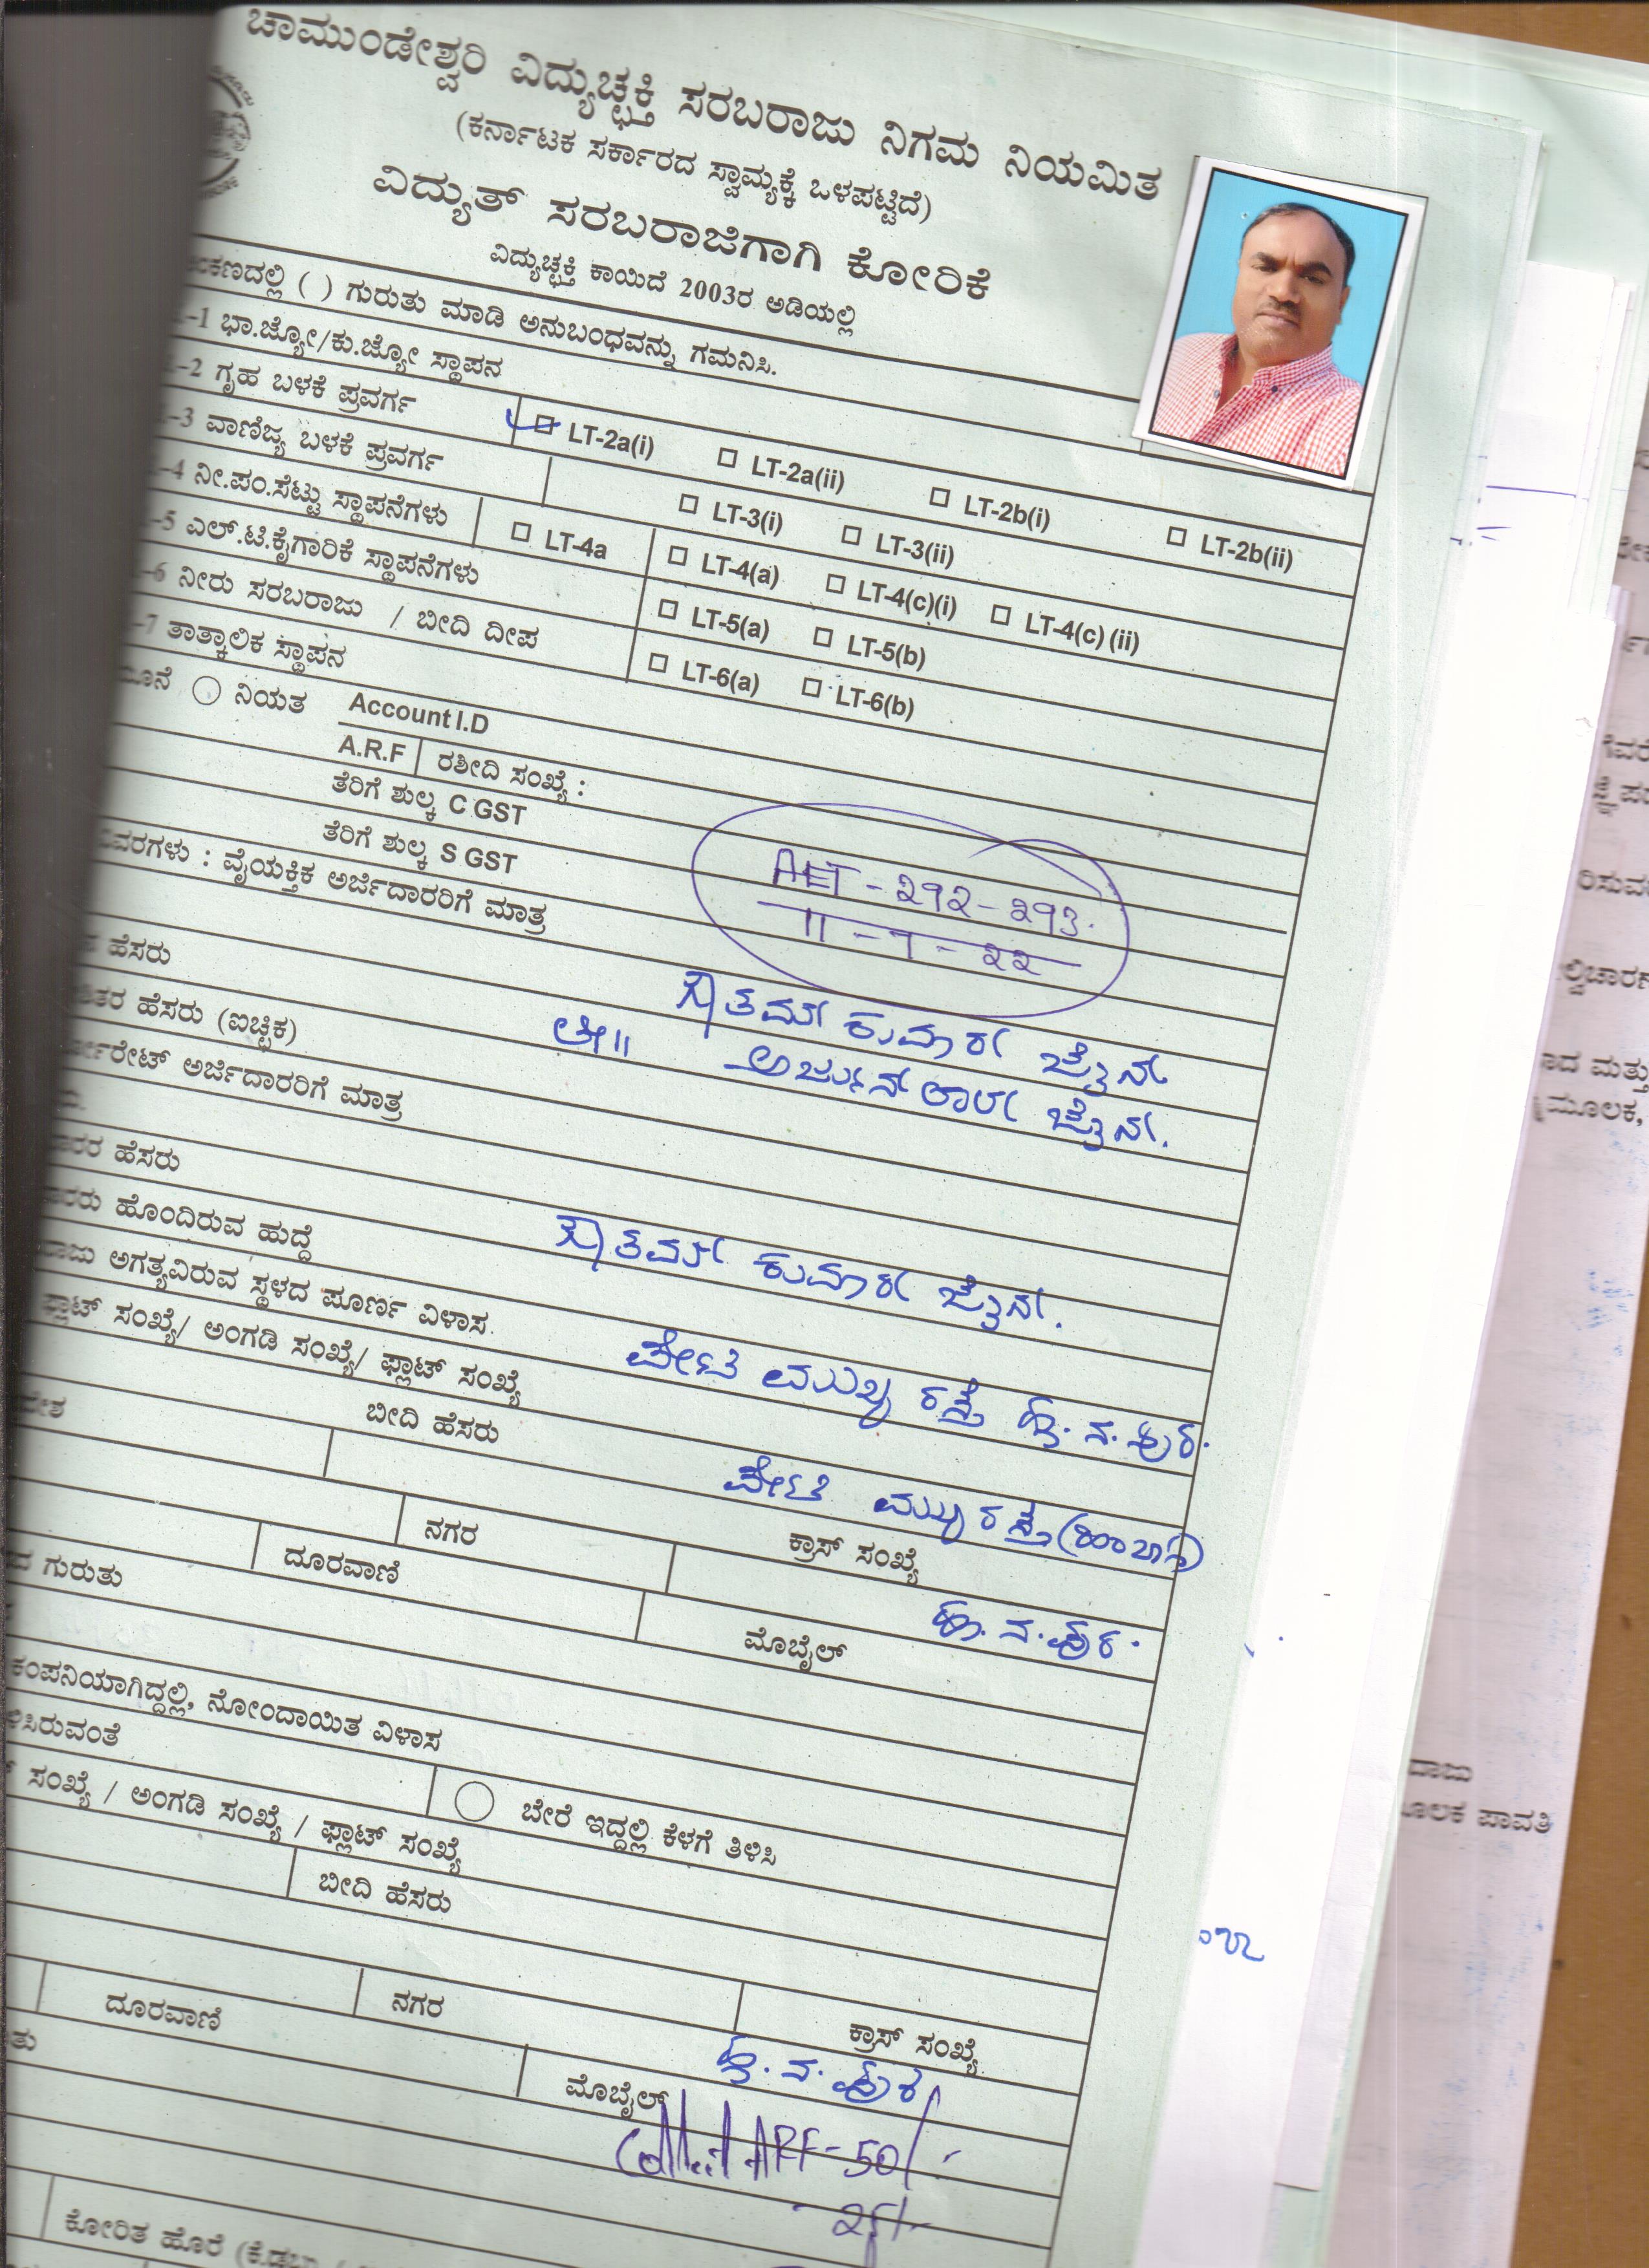 ಚಾಮುಂಡೇಶ್ವರಿ ವಿದ್ಯುಚ್ಛಕ್ತಿ ಸರಬರಾಜು ನಿಗಮ ನಿಯಮಿತ
(ಕರ್ನಾಟಕ ಸರ್ಕಾರದ ಸ್ವಾಮ್ಯಕ್ಕೆ ಒಳಪಟ್ಟಿದೆ)
ವಿದ್ಯುತ್ ಸರಬರಾಜಿಗಾಗಿ ಕೋರಿಕೆ
ವಿದ್ಯುಚ್ಛಕ್ತಿ ಕಾಯಿದೆ 2003ರ ಅಡಿಯಲ್ಲಿ
ಕಣದಲ್ಲಿ ( ) ಗುರುತು ಮಾಡಿ ಅನುಬಂಧವನ್ನು ಗಮನಿಸಿ.
-1 ಭಾ.ಜ್ಯೋ/ಕು.ಜ್ಯೋ ಸ್ಥಾಪನ
-2 ಗೃಹ ಬಳಕೆ ಪ್ರವರ್ಗ LT-2a(i) LT-2a(ii) LT-2b(i) LT-2b(ii)
-3 ವಾಣಿಜ್ಯ ಬಳಕೆ ಪ್ರವರ್ಗ LT-3(i) LT-3(ii)
-4 ನೀ.ಪಂ.ಸೆಟ್ಟು ಸ್ಥಾಪನೆಗಳು LT-4a LT-4(a) LT-4(c)(i) LT-4(c) (ii)
-5 ಎಲ್.ಟಿ.ಕೈಗಾರಿಕೆ ಸ್ಥಾಪನೆಗಳು LT-5(a) LT-5(b)
-6 ನೀರು ಸರಬರಾಜು / ಬೀದಿ ದೀಪ LT-6(a) LT-6(b)
-7 ತಾತ್ಕಾಲಿಕ ಸ್ಥಾಪನ
ನಿಯತ Account I.D
A.R.F ರಶೀದಿ ಸಂಖ್ಯೆ :
ತೆರಿಗೆ ಶುಲ್ಕ C GST
ತೆರಿಗೆ ಶುಲ್ಕ S GST
AET - ೨೧೨ - ೨೧೩.
11 - ೨೨
ವಿವರಗಳು : ವೈಯಕ್ತಿಕ ಅರ್ಜಿದಾರರಿಗೆ ಮಾತ್ರ
ಹೆಸರು ಗೌತಮ್ ಕುಮಾರ್ ಜೈನ್
ಹೆಸರು (ಐಚ್ಛಿಕ) ಅರ್ಜುನ್ ಲಾಲ್ ಜೈನ್.
ಅರ್ಜಿದಾರರಿಗೆ ಮಾತ್ರ
ಹೆಸರು
ಹೊಂದಿರುವ ಹುದ್ದೆ ಗೌತಮ್ ಕುಮಾರ್ ಜೈನ್.
ಅಗತ್ಯವಿರುವ ಸ್ಥಳದ ಪೂರ್ಣ ವಿಳಾಸ
ಪ್ಲಾಟ್ ಸಂಖ್ಯೆ/ ಅಂಗಡಿ ಸಂಖ್ಯೆ/ ಫ್ಲಾಟ್ ಸಂಖ್ಯೆ ಪೇಟೆ ಮುಖ್ಯ ರಸ್ತೆ ಹೊ. ನ. ಪುರ.
ಬೀದಿ ಹೆಸರು ಪೇಟೆ ಮುಖ್ಯ ರಸ್ತೆ
ನಗರ ಕ್ರಾಸ್ ಸಂಖ್ಯೆ
ದೂರವಾಣಿ ಮೊಬೈಲ್
ಹೊ. ನ. ಪುರ.
ಗುರುತು
ಕಂಪನಿಯಾಗಿದ್ದಲ್ಲಿ, ನೋಂದಾಯಿತ ವಿಳಾಸ
ಬೇರೆ ಇದ್ದಲ್ಲಿ ಕೆಳಗೆ ತಿಳಿಸಿ
ಸಂಖ್ಯೆ / ಅಂಗಡಿ ಸಂಖ್ಯೆ / ಫ್ಲಾಟ್ ಸಂಖ್ಯೆ
ಬೀದಿ ಹೆಸರು
ನಗರ ಕ್ರಾಸ್ ಸಂಖ್ಯೆ
ದೂರವಾಣಿ ಮೊಬೈಲ್
ಹೊ. ನ. ಪುರ
Collect ARF - 50/-
ಕೋರಿತ ಹೊರೆ
ಮೂಲಕ,
ಪಾವತಿ